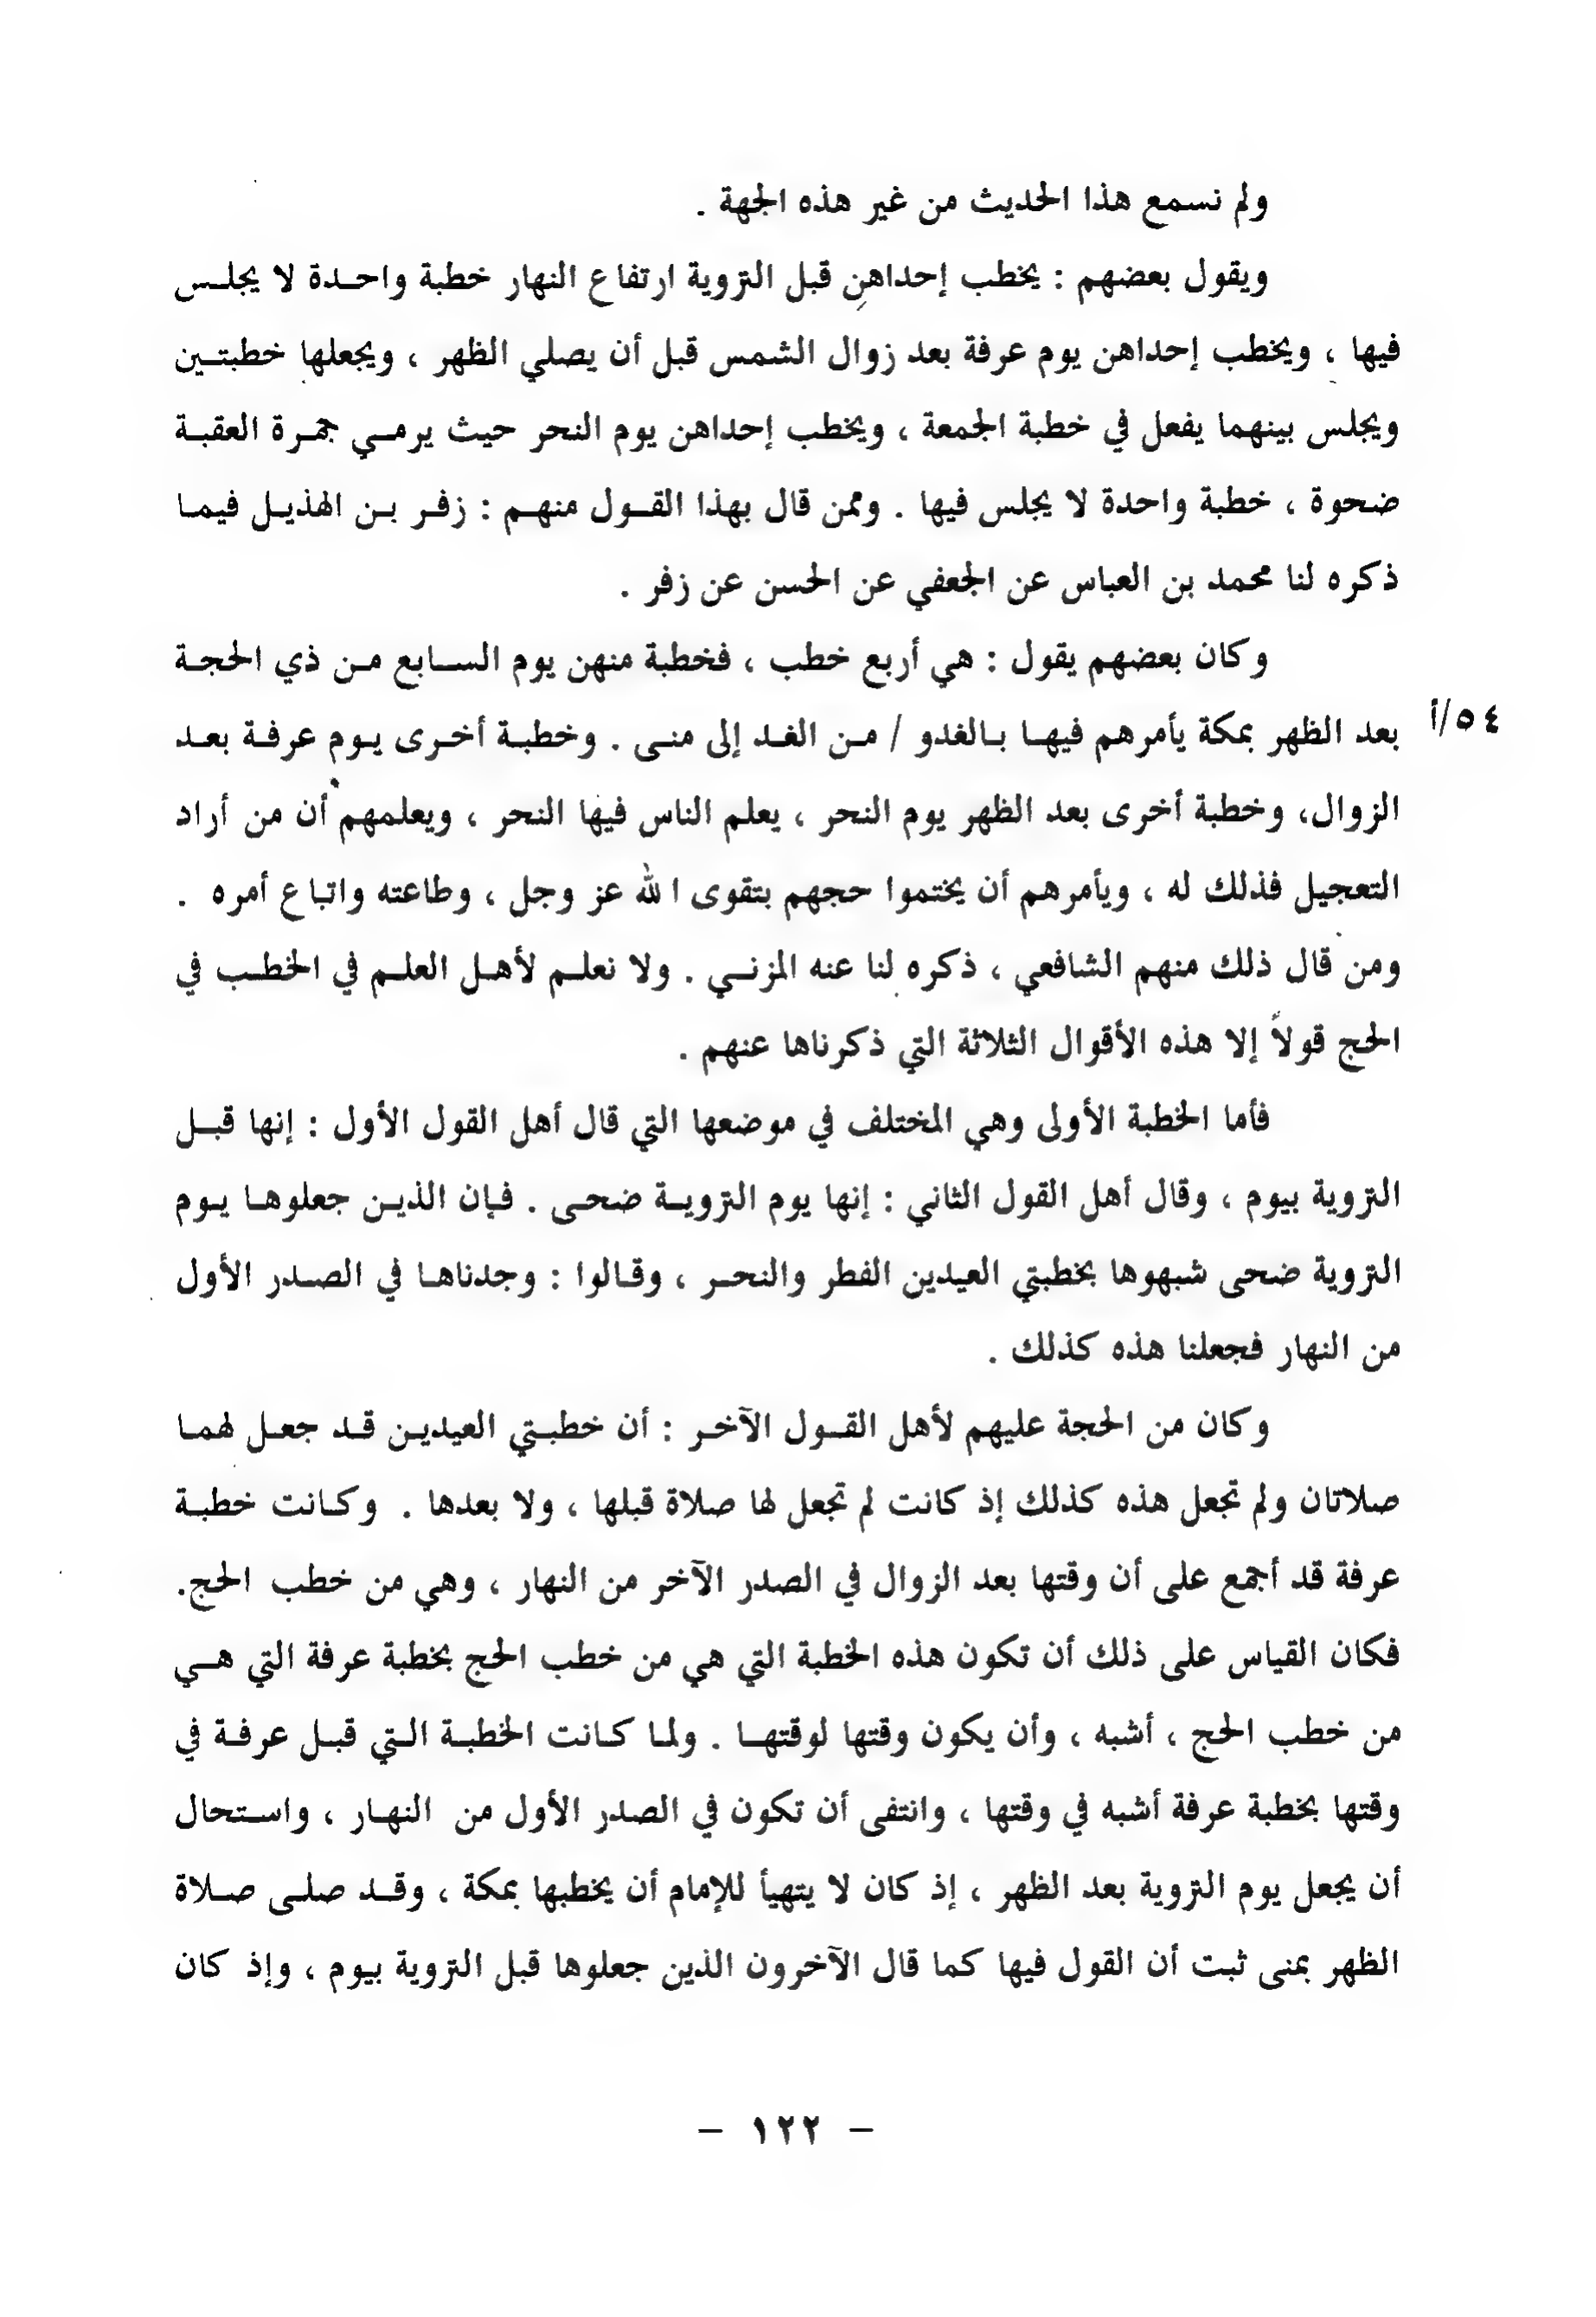 ولم نسمع هذا الحديث من غير هذه الجهة .
ويقول بعضهم : يخطب إحداهن قبل التروية ارتفاع النهار خطبة واحدة لا يجلس
فيها ، ويخطب إحداهن يوم عرفة بعد زوال الشمس قبل أن يصلي الظهر ، ويجعلها خطبتين
ويجلس بينهما يفعل في خطبة الجمعة ، ويخطب إحداهن يوم النحر حيث يرمي جمرة العقبة
ضحوة ، خطبة واحدة لا يجلس فيها . وممن قال بهذا القول منهم : زفر بن الهذيل فيما
ذكره لنا محمد بن العباس عن الجعفي عن الحسن عن زفر .
وكان بعضهم يقول : هي أربع خطب ، فخطبة منهن يوم السابع من ذي الحجة
٥٤/أ
بعد الظهر بمكة يأمرهم فيها بالغدو / من الغد إلى منى . وخطبة أخرى يوم عرفة بعد
الزوال، وخطبة أخرى بعد الظهر يوم النحر ، يعلم الناس فيها النحر ، ويعلمهم أن من أراد
التعجيل فذلك له ، ويأمرهم أن يختموا حجهم بتقوى الله عز وجل ، وطاعته واتباع أمره .
ومن قال ذلك منهم الشافعي ، ذكره لنا عنه المزني . ولا نعلم لأهل العلم في الخطب في
الحج قولاً إلا هذه الأقوال الثلاثة التي ذكرناها عنهم .
فأما الخطبة الأولى وهي المختلف في موضعها التي قال أهل القول الأول : إنها قبل
التروية بيوم ، وقال أهل القول الثاني : إنها يوم التروية ضحى . فإن الذين جعلوها يوم
التروية ضحى شبهوها بخطبتي العيدين الفطر والنحر ، وقالوا : وجدناها في الصدر الأول
من النهار فجعلنا هذه كذلك .
وكان من الحجة عليهم لأهل القول الآخر : أن خطبتي العيدين قد جعل لهما
صلاتان ولم تجعل هذه كذلك إذ كانت لم تجعل لها صلاة قبلها ، ولا بعدها . وكانت خطبة
عرفة قد أجمع على أن وقتها بعد الزوال في الصدر الآخر من النهار ، وهي من خطب الحج.
فكان القياس على ذلك أن تكون هذه الخطبة التي هي من خطب الحج بخطبة عرفة التي هي
من خطب الحج ، أشبه ، وأن يكون وقتها لوقتها . ولما كانت الخطبة التي قبل عرفة في
وقتها بخطبة عرفة أشبه في وقتها ، وانتفى أن تكون في الصدر الأول من النهار ، واستحال
أن يجعل يوم التروية بعد الظهر ، إذ كان لا يتهيأ للإمام أن يخطبها بمكة ، وقد صلى صلاة
الظهر بمنى ثبت أن القول فيها كما قال الآخرون الذين جعلوها قبل التروية بيوم ، وإذ كان
– ١٢٢ –